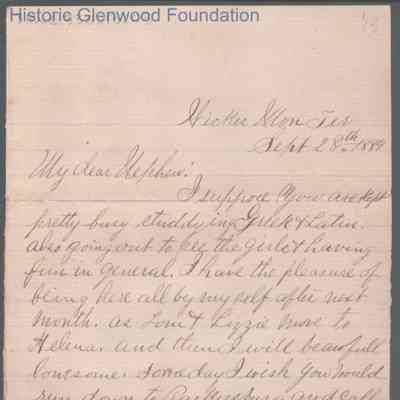 Historic Glenwood Foundation
Hecker Mon Ter
Sept 28th 1884
My dear Nephew:
I suppose you are kept
pretty busy studdying Greek & Latin.
Also going out to see the girls & having
fun in general. I have the pleasure of
being here all by my self after next
month. as Tom & Lizzie move to
Helena. and then I will be awfull
lonesome. Someday I wish you would
run down to and call